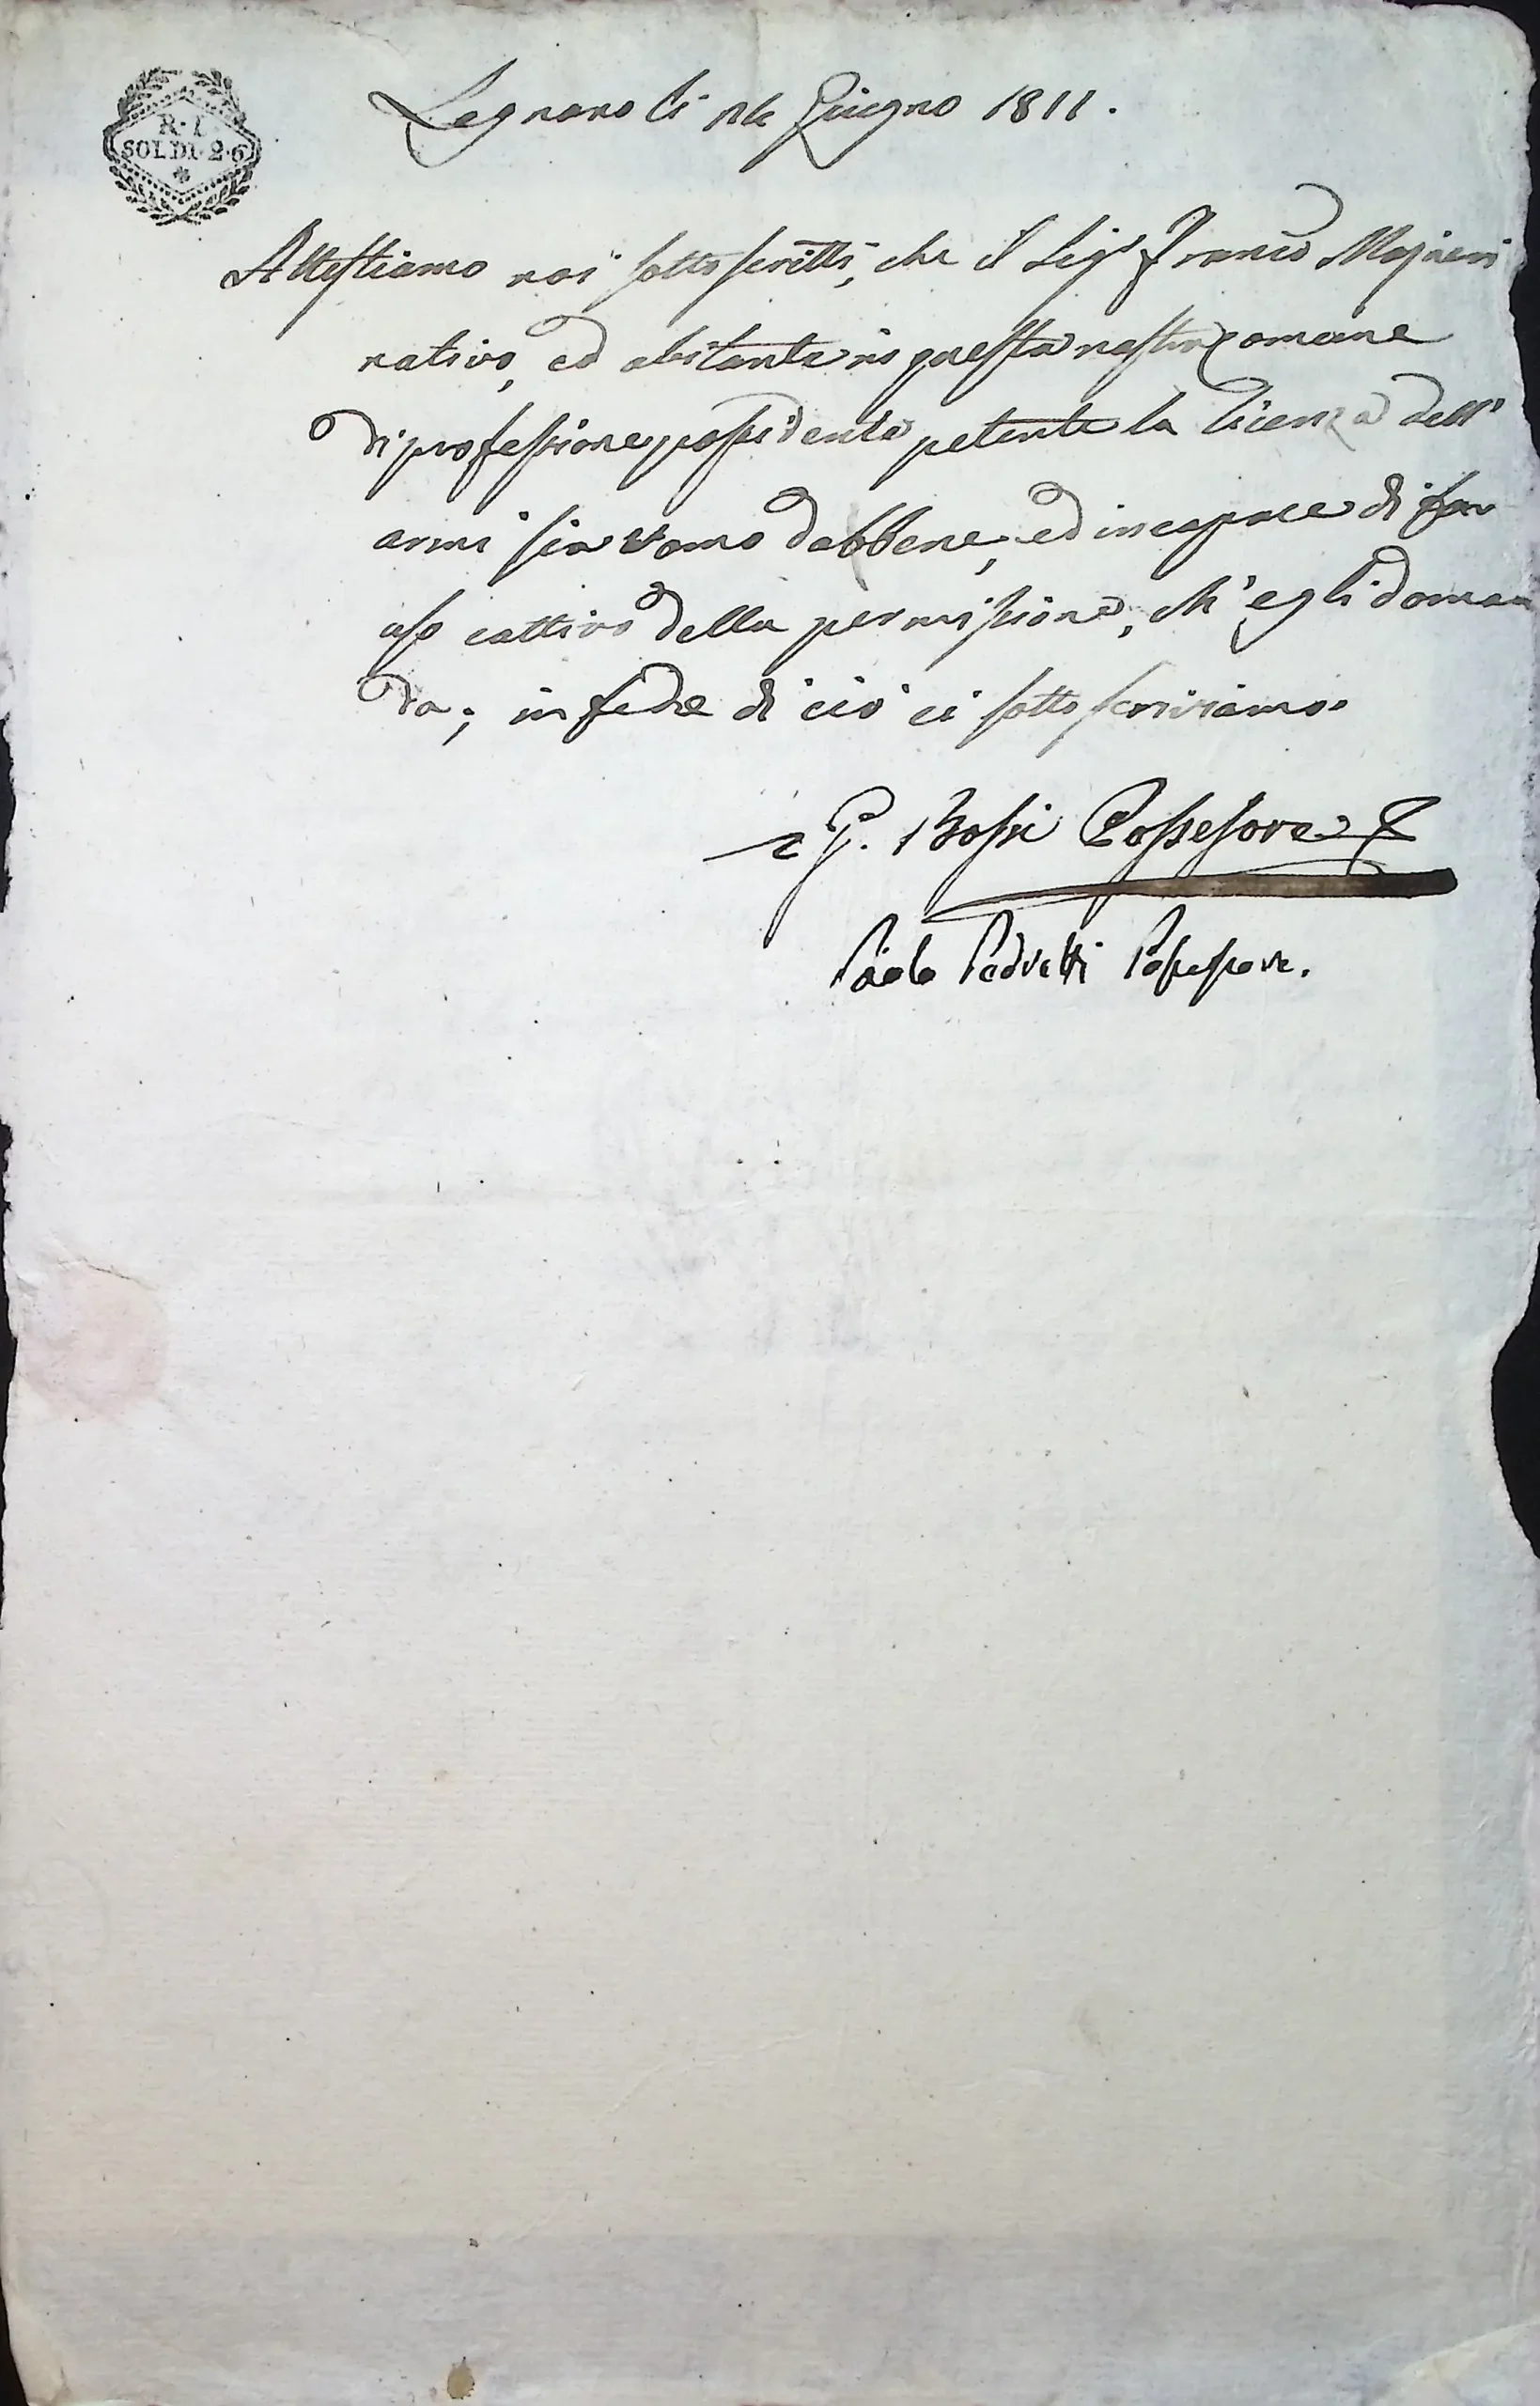 R. I
SOLDI. 2. 6
Legnano li Giugno 1811.
Attestiamo noi sottoscritti, che il Sigr Franco
nativo, ed abitante in questa nostra Comune
di professione possidente petente la licenza dell'
armi sia Uomo dabbene, ed incapace di far
uso cattivo della permissione, ch' egli doman
da; in fede di ciò ci sottoscriviamo.
G. Bossi Possessore
Paolo Pedretti Possessore.